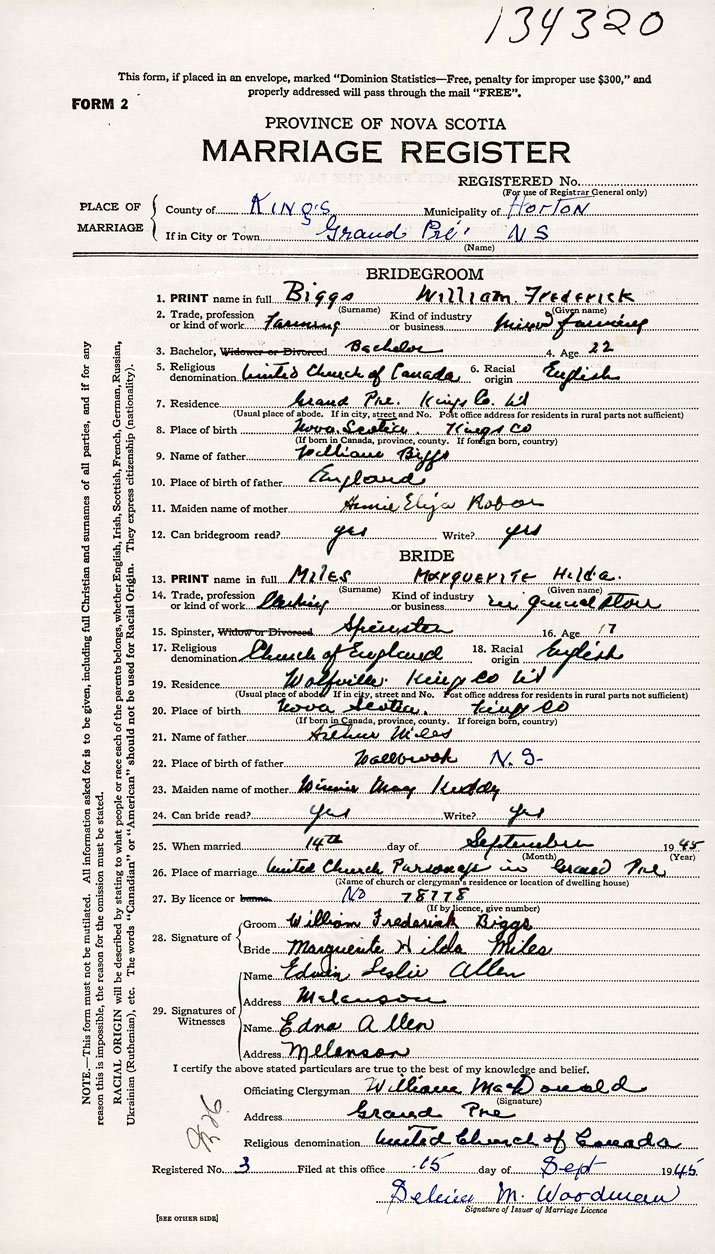 134320
This form, if placed in an envelope, marked "Dominion Statistics—Free, penalty for improper use $300," and
properly addressed will pass through the mail "FREE".
FORM 2
PROVINCE OF NOVA SCOTIA
MARRIAGE REGISTER
REGISTERED No.
(For use of Registrar General only)
PLACE OF MARRIAGE
County of KINGS Municipality of HORTON
If in City or Town Grand Pré NS
(Name)
BRIDEGROOM
1. PRINT name in full Biggs William Frederick
(Surname) (Given name)
2. Trade, profession or kind of work Farming Kind of industry or business Mixed farming
3. Bachelor, Widower or Divorced Bachelor 4. Age 22
5. Religious denomination United Church of Canada 6. Racial origin English
7. Residence Grand Pre. Kings Co.
(Usual place of abode. If in city, street and No. Post office address for residents in rural parts not sufficient)
8. Place of birth Nova Scotia. Kings Co
(If born in Canada, province, county. If foreign born, country)
9. Name of father William Biggs
10. Place of birth of father England
11. Maiden name of mother Eliza
12. Can bridegroom read? yes Write? yes
BRIDE
13. PRINT name in full MILES MARGUERITE Hilda.
(Surname) (Given name)
14. Trade, profession or kind of work Clerking Kind of industry or business in general store
15. Spinster, Widow or Divorced Spinster 16. Age 17
17. Religious denomination Church of England 18. Racial origin English
19. Residence Wolfville. Kings Co
(Usual place of abode. If in city, street and No. Post office address for residents in rural parts not sufficient)
20. Place of birth Nova Scotia. Kings Co
(If born in Canada, province, county. If foreign born, country)
21. Name of father Arthur Miles
22. Place of birth of father Wallbrook N.S-
23. Maiden name of mother Winnie May Kuddy
24. Can bride read? yes Write? yes
25. When married 14th day of September 1945
(Month) (Year)
26. Place of marriage United Church Parsonage in Grand Pre
(Name of church or clergyman's residence or location of dwelling house)
27. By licence or banns. No 78778
(If by licence, give number)
28. Signature of
Groom William Frederick Biggs
Bride Marguerite Hilda Miles
29. Signatures of Witnesses
Name Edwin Leslie Allen
Address Melanson
Name Edna Allen
Address Melanson
I certify the above stated particulars are true to the best of my knowledge and belief.
Officiating Clergyman William MacDonald
(Signature)
Address Grand Pre
Religious denomination United Church of Canada
Registered No. 3 Filed at this office 15 day of Sept 1945
M. Woodman
Signature of Issuer of Marriage Licence
[SEE OTHER SIDE]
NOTE.—This form must not be mutilated. All information asked for is to be given, including full Christian and surnames of all parties, and if for any
reason this is impossible, the reason for the omission must be stated.
RACIAL ORIGIN will be described by stating to what people or race each of the parents belongs, whether English, Irish, Scottish, French, German, Russian,
Ukrainian (Ruthenian), etc. The words "Canadian" or "American" should not be used for Racial Origin. They express citizenship (nationality).